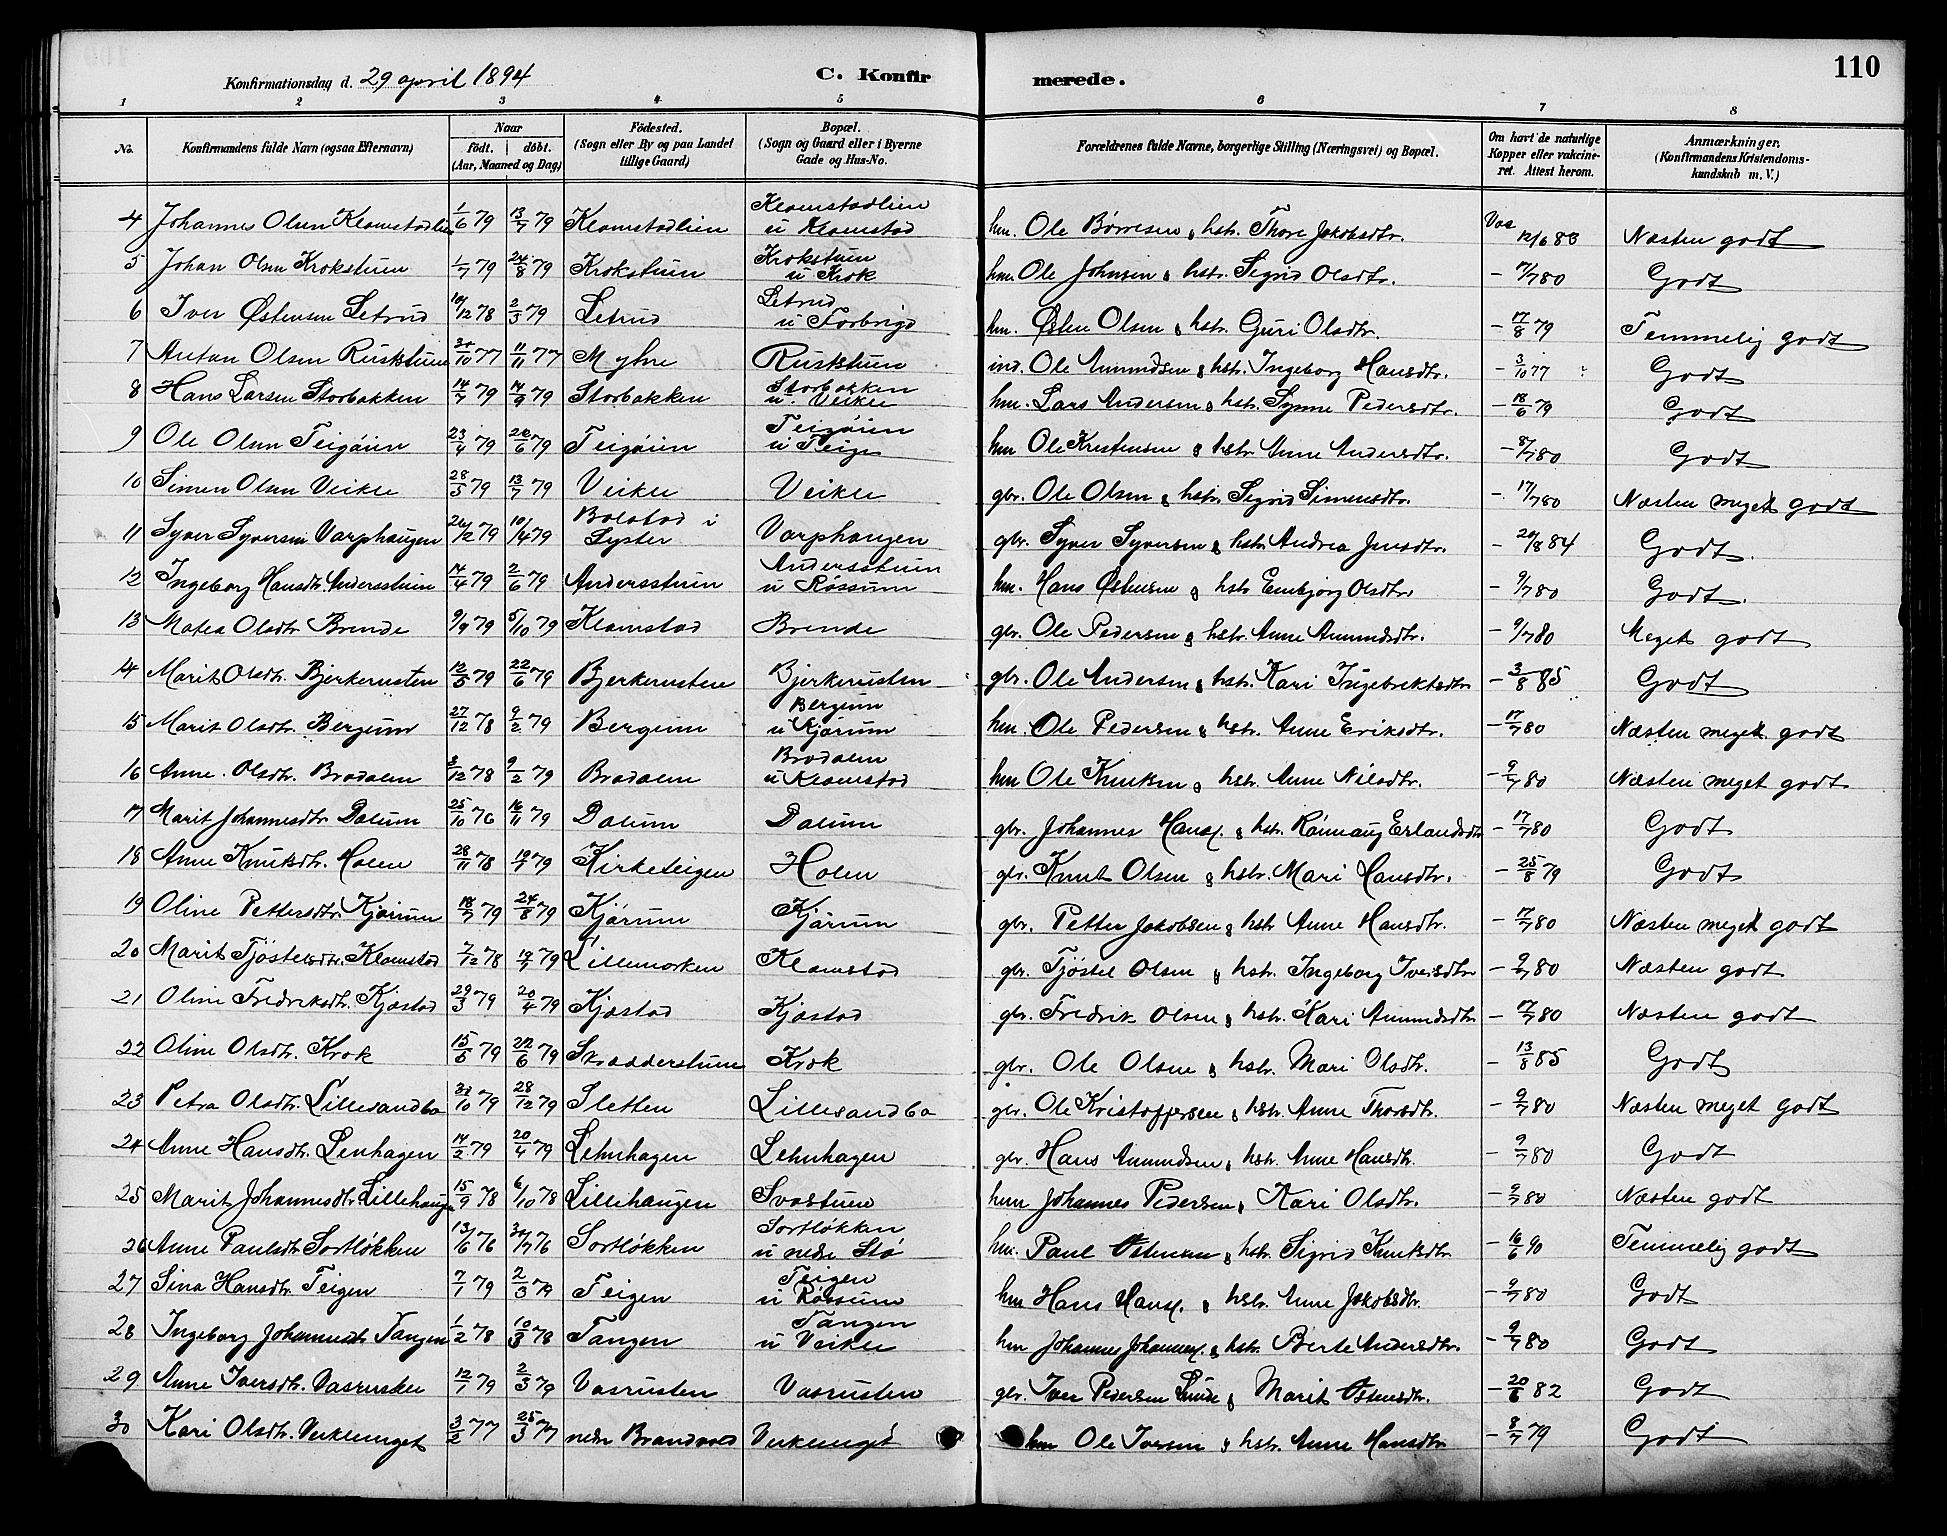 110
Konfirmationsdag d. 29 april 1894
C. Konfirmerede.
1 2 3 4 5 6 7 8
No. Konfirmandens fulde Navn (ogsaa Efternavn) Naar født. døbt. (Aar, Maaned og Dag) Fødested. (Sogn eller By og paa Landet tillige Gaard) Bopæl. (Sogn og Gaard eller i Byerne Gade og Hus-No. Forældrenes fulde Navne, borgerlige Stilling (Næringsvei) og Bopæl. Om havt de naturlige Kopper eller vakcineret. Attest herom. Anmærkninger. (Konfirmandens Kristendomskundskab m. V.)
4 Johannes Olsen Klomstadlien 1/6 79 13/7 79 Klomstadlien Klomstadlien u Klomstad hm. Ole Børresen & hstr. Thore Jakobsdtr. Vac 12/6 80 Næsten godt
5 Johan Olsn Krokstuen 1/7 79 24/8 79 Krokstuen Krokstuen u Krok hm. Ole Johnsen & hstr. Sigrid Olsdtr. - 7/7 80 Godt
6 Iver Østensen Letrud 10/12 78 2/3 79 Letrud Letrud u Forbrigd hm. Østen Olsen & hstr. Guri Olsdtr. - 17/8 79 Temmelig godt
7 Anton Olsen Ruststuen 10 77 11/11 77 Myhre Ruststuen ind. Ole Amundsen & hstr. Ingeborg Hansdtr. - 3/10 77 Godt
8 Hans Larsen Storbakken 14/7 79 14/9 79 Storbakken Storbakken u. Veikle hm. Lars Andersen & hstr. Synne Pedersdtr. - 18/6 79 Godt
9 Ole Olsen Teigøien 23/4 79 79 Teigøien Teigøien u Teige hm Ole Kristensen & hstr. Anne Andersdtr. - 8/7 80 Godt
10 Simen Olsen Veikle 28/5 79 13/7 79 Veikle Veikle gbr. Ole Olsen & hstr. Sigrid Simensdtr. - 17/7 80 Næsten meget godt
11 Syver Syversen Varphaugen 26/12 79 10/4 79 Bolstad i Lyster Varphaugen gbr. Syver Syversen & hstr. Andrea Jensdtr. - 29/8 84 Godt.
12 Ingeborg Hansdtr. Andersstuen 14/4 79 2/6 79 Andersstuen Andersstuen u Røssum hm. Hans Østensen & hstr Embjørg Olsdtr. - 9/7 80 Godt.
13 Matea Olsdtr Brende 9/9 79 5/10 79 Klomstad Brende gbr. Ole Pedersen & hstr. Anne Amundsdtr. - 9/7 80 Meget godt
14 Marit Olsdtr. Bjerkerusten 12/5 79 22/6 79 Bjerkerusten Bjerkerusten gbr. Ole Andersen & hstr. Kari Ingebrektsdtr - 3/8 85 Godt
15 Marit Olsdtr. Bergum 27/12 78 9/2 79 Bergum Bergum u Kjørum hm. Ole Pedersen & hstr. Anne Eriksdtr. - 17/7 80 Næsten meget godt
16 Anne Olsdtr. Brodalen 3/12 78 9/2 79 Brodalen Brodalen u Klomstad hm Ole Knutsen & hstr. Anne Nilsdtr. - 9/7 80 Næsten meget godt
17 Marit Johannesdtr Dalum 25/10 76 16/11 79 Dalum Dalum gbr. Johannes Hans. & hstr. Rønnaug Erlandsdtr - 17/7 80 Godt
18 Anne Knutsdtr. Holen 28/11 78 79 Kirketeigen Holen gbr. Knut Olsen & hstr. Mari Hansdtr. - 25/8 79 Godt
19 Oline Pettersdtr. Kjørum 18/7 79 24/8 79 Kjørum Kjørum gbr. Petter Jakobsen & hstr Anne Hansdtr. - 17/7 80 Næsten meget godt
20 Marit Tjøstelsdtr. Klomstad 7/12 78 79 Lillemorken Klomstad gbr. Tjøstel Olsen & hstr. Ingeborg Iversdtr - 9/7 80 Næsten godt
21 Oline Fredriksdtr. Kjæstad 29/3 79 20/4 79 Kjæstad Kjæstad gbr. Fredrik Olsen & hstr. Kari Amundsdtr - 17/7 80 Næsten godt
22 Oline Olsdtr. Krok 15/5 79 22/6 79 Skradderstuen Krok gbr. Ole Olsen & hstr. Mari Olsdtr. - 13/8 85 Godt
23 Petra Olsdtr. Lillesandbo 10 79 28/12 79 Sletten Lillesandbo gbr. Ole Kristoffersen & hstr. Anne Thorsdtr. - 9/7 80 Næsten meget godt
24 Anne Hansdtr. Lenhagen 14/2 79 20/4 79 Lehnhagen Lehnhagen gbr. Hans Amundsen & hstr. Anne Hansdtr. - 9/7 80 Godt
25 Marit Johannesdtr. Lillehaugen 15/9 78 6/10 78 Lillehaugen Svastuen hm Johannes Pedersen & Kari Olsdtr. - 9/7 80 Næsten godt
26 Anne Paulsdtr Sortløkken 13/6 76 30/7 76 Sortløkken Sortløkken u nedre Stø hm. Paul Ostensen & hstr. Sigrid Knutsdtr - 16/6 90 Temmelig godt
27 Sina Hansdtr. Teigen 7/1 79 2/3 79 Teigen Teigen u Røssum hm Hans Hans. & hstr. Anne Jakobsdtr. - 9/7 80 Godt
28 Ingeborg Johannesdtr Tangen 1/2 78 10/3 78 Tangen Tangen u Veikle hm Johannes Johannes. & hstr. Berte Andersdtr. - 9/7 80 Godt
29 Anne Iversdtr. Vasrusten 12/1 79 2/3 79 Vasrusten Vasrusten gbr. Iver Pedersen Lunde & Marit Ostensdtr. - 20/6 82 Godt
30 Kari Olsdtr. Veikleenget 3/2 77 25/3 77 nedre Brandvold Veikleenget hm Ole Iversen & hstr. Anne Hansdtr - 8/7 79 Godt